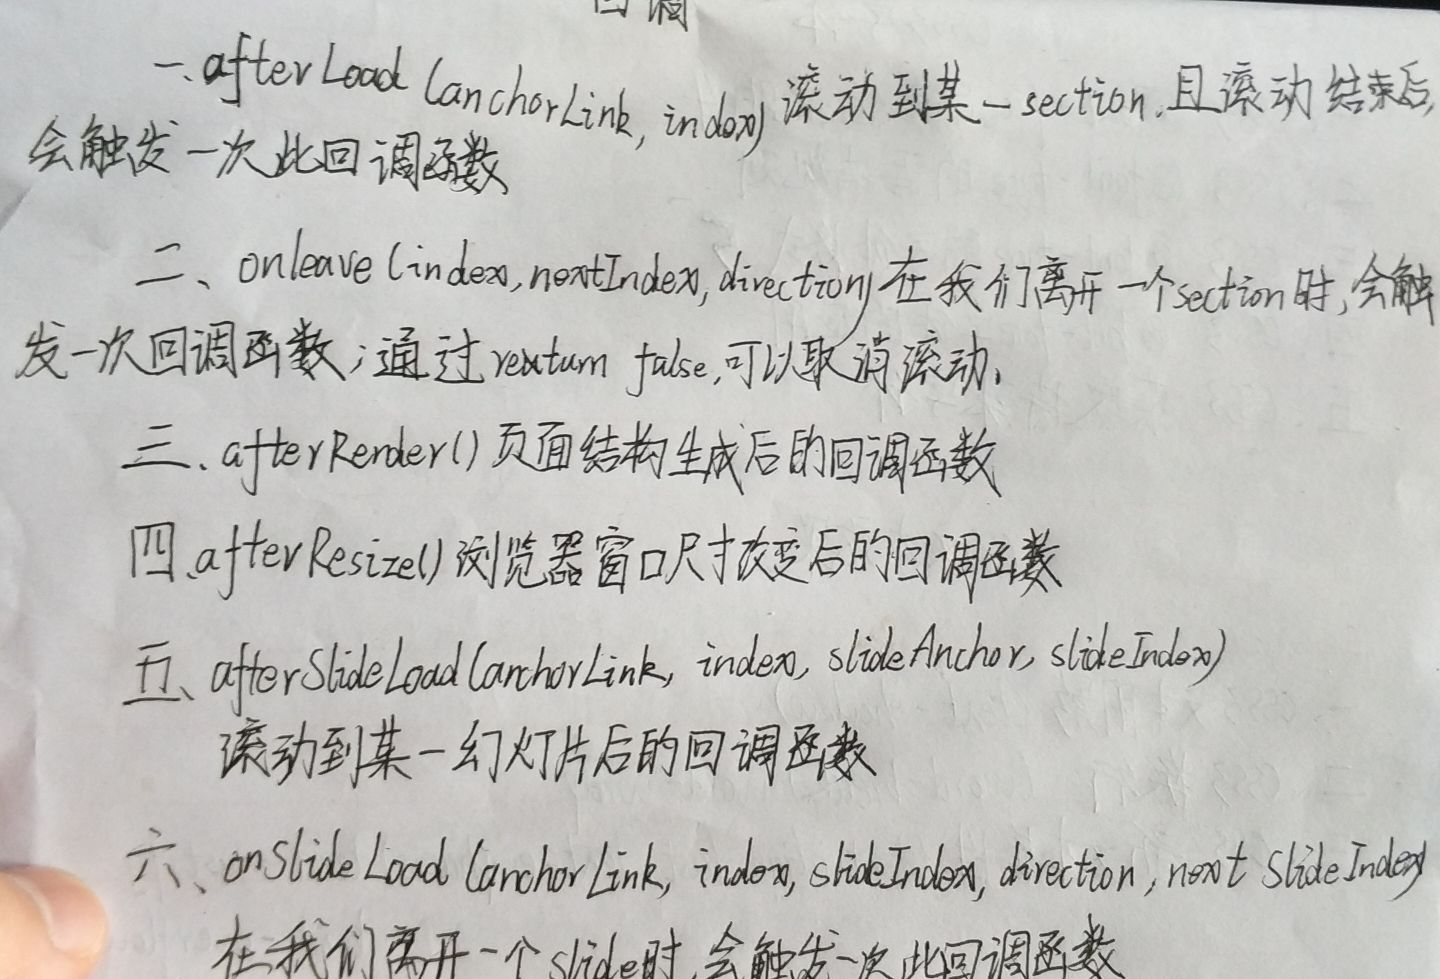 回调
一、afterLoad (anchorLink, index) 滚动到某一section,且滚动结束后,
会触发一次此回调函数
二、onleave (index, nextIndex, direction) 在我们离开一个section时,会触
发一次回调函数;通过 return false,可以取消滚动、
三、afterRender() 页面结构生成后的回调函数
四、afterResize() 浏览器窗口尺寸改变后的回调函数
五、afterSlideLoad (anchorLink, index, slideAnchor, slideIndex)
滚动到某一幻灯片后的回调函数
六、onSlideLoad (anchorLink, index, slideIndex, direction, next SlideIndex)
在我们离开一个slide时,会触发一次此回调函数